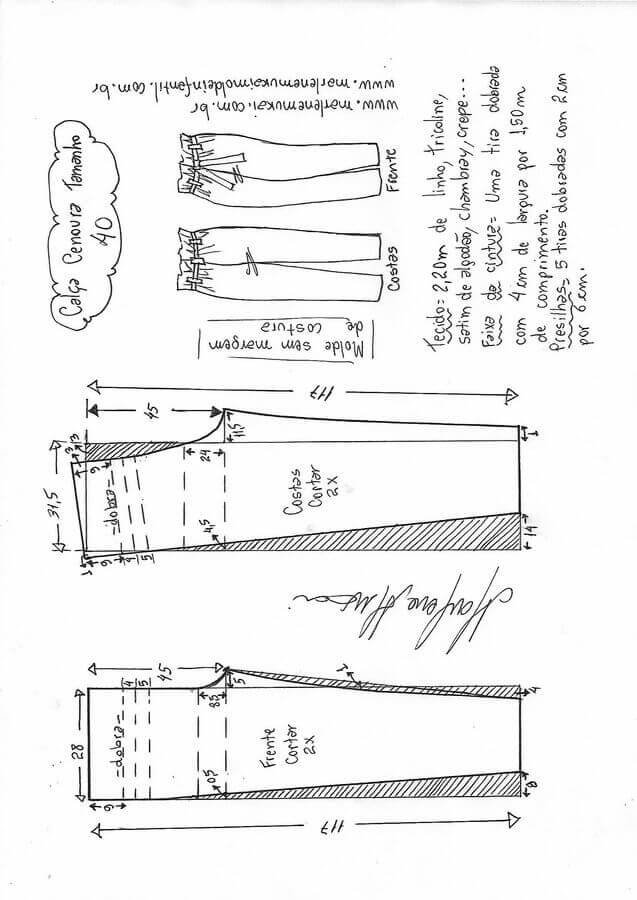 Calça Cenoura Tamanho
40
www.marlenemukai.com.br
www.marlenemukaimoldeinfantil.com.br
Frente
Costas
Molde sem margem
de costura
Tecido= 2,20m de linho, tricoline,
satim de algodão, chambray, crepe...
Faixa de cintura= Uma tira dobrada
com 4 cm de largura por 1,50m
de comprimento.
Presilhas= 5 tiras dobradas com 2 cm
por 6 cm.
117
45
3
3
9
11,5
1
24
31,5
-dobra-
Costas
Cortar
2x
4,5
14
1
9
4
5
45
4
5
5
8,5
1
4
28
-dobra-
Frente
Cortar
2x
0,5
8
9
117